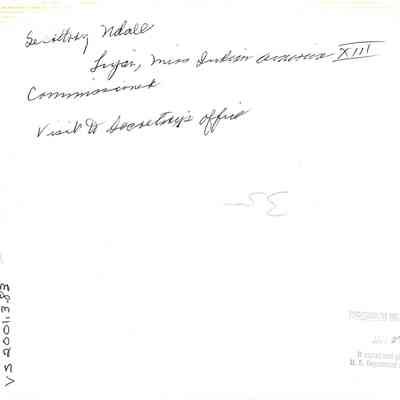 Secretary Udall
Miss Indian America XIII
Commissioner
Visit to Secretary's office
VS 2001.3.83
U. S. Department